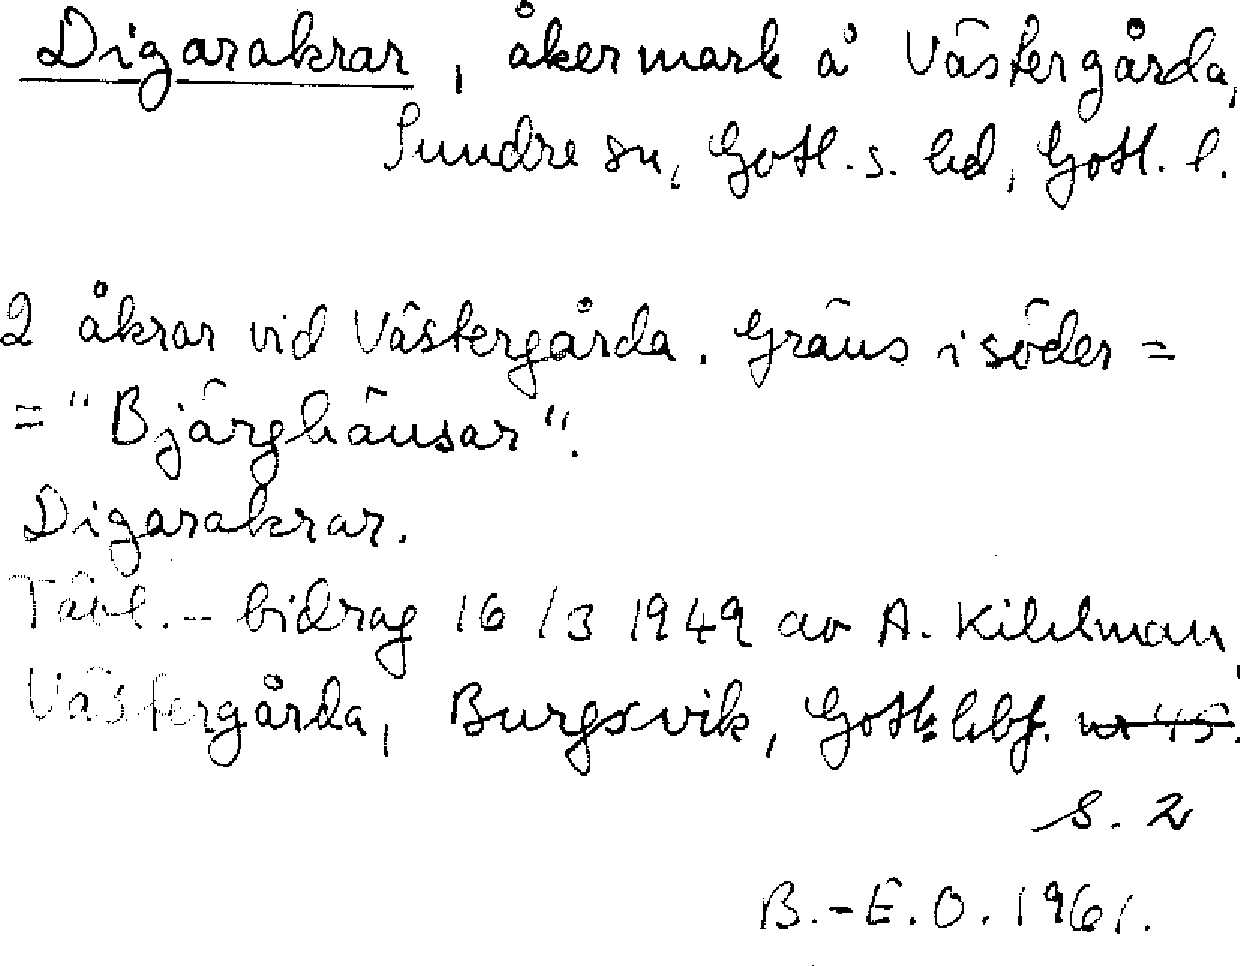 Digarakrar, åkermark å Västergårda,
Sundre sn, Gotl. s. hd, Gotl. l.
2 åkrar vid Västergårda. Gräns i söder =
= "Bjärghänsar".
Digarakrar.
Tävl. - bidrag 16/3 1949 av A. Kihlman,
Västergårda, Burgsvik, Gotl. hbf. nr 45.
s. 2
B.-E.O. 1961.